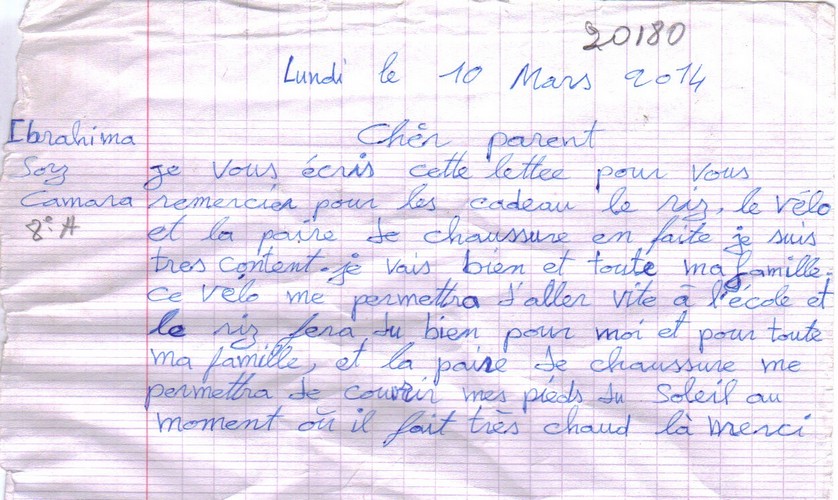 20180
Lundi le 10 Mars 2014
Ibrahima
Chèr parent
Sory
je vous écris cette lettee pour vous
Camara
remercier pour les cadeau le riz, le vélo
8e A
et la paire de chaussure en faite je suis
tres content. je vais bien et toute ma famille.
ce velo me permettra d'aller vite à l'école et
le riz fera du bien pour moi et pour toute
ma famille, et la paire de chaussure me
permettra de couvrir mes pieds du Soleil au
moment où il fait très chaud là merci